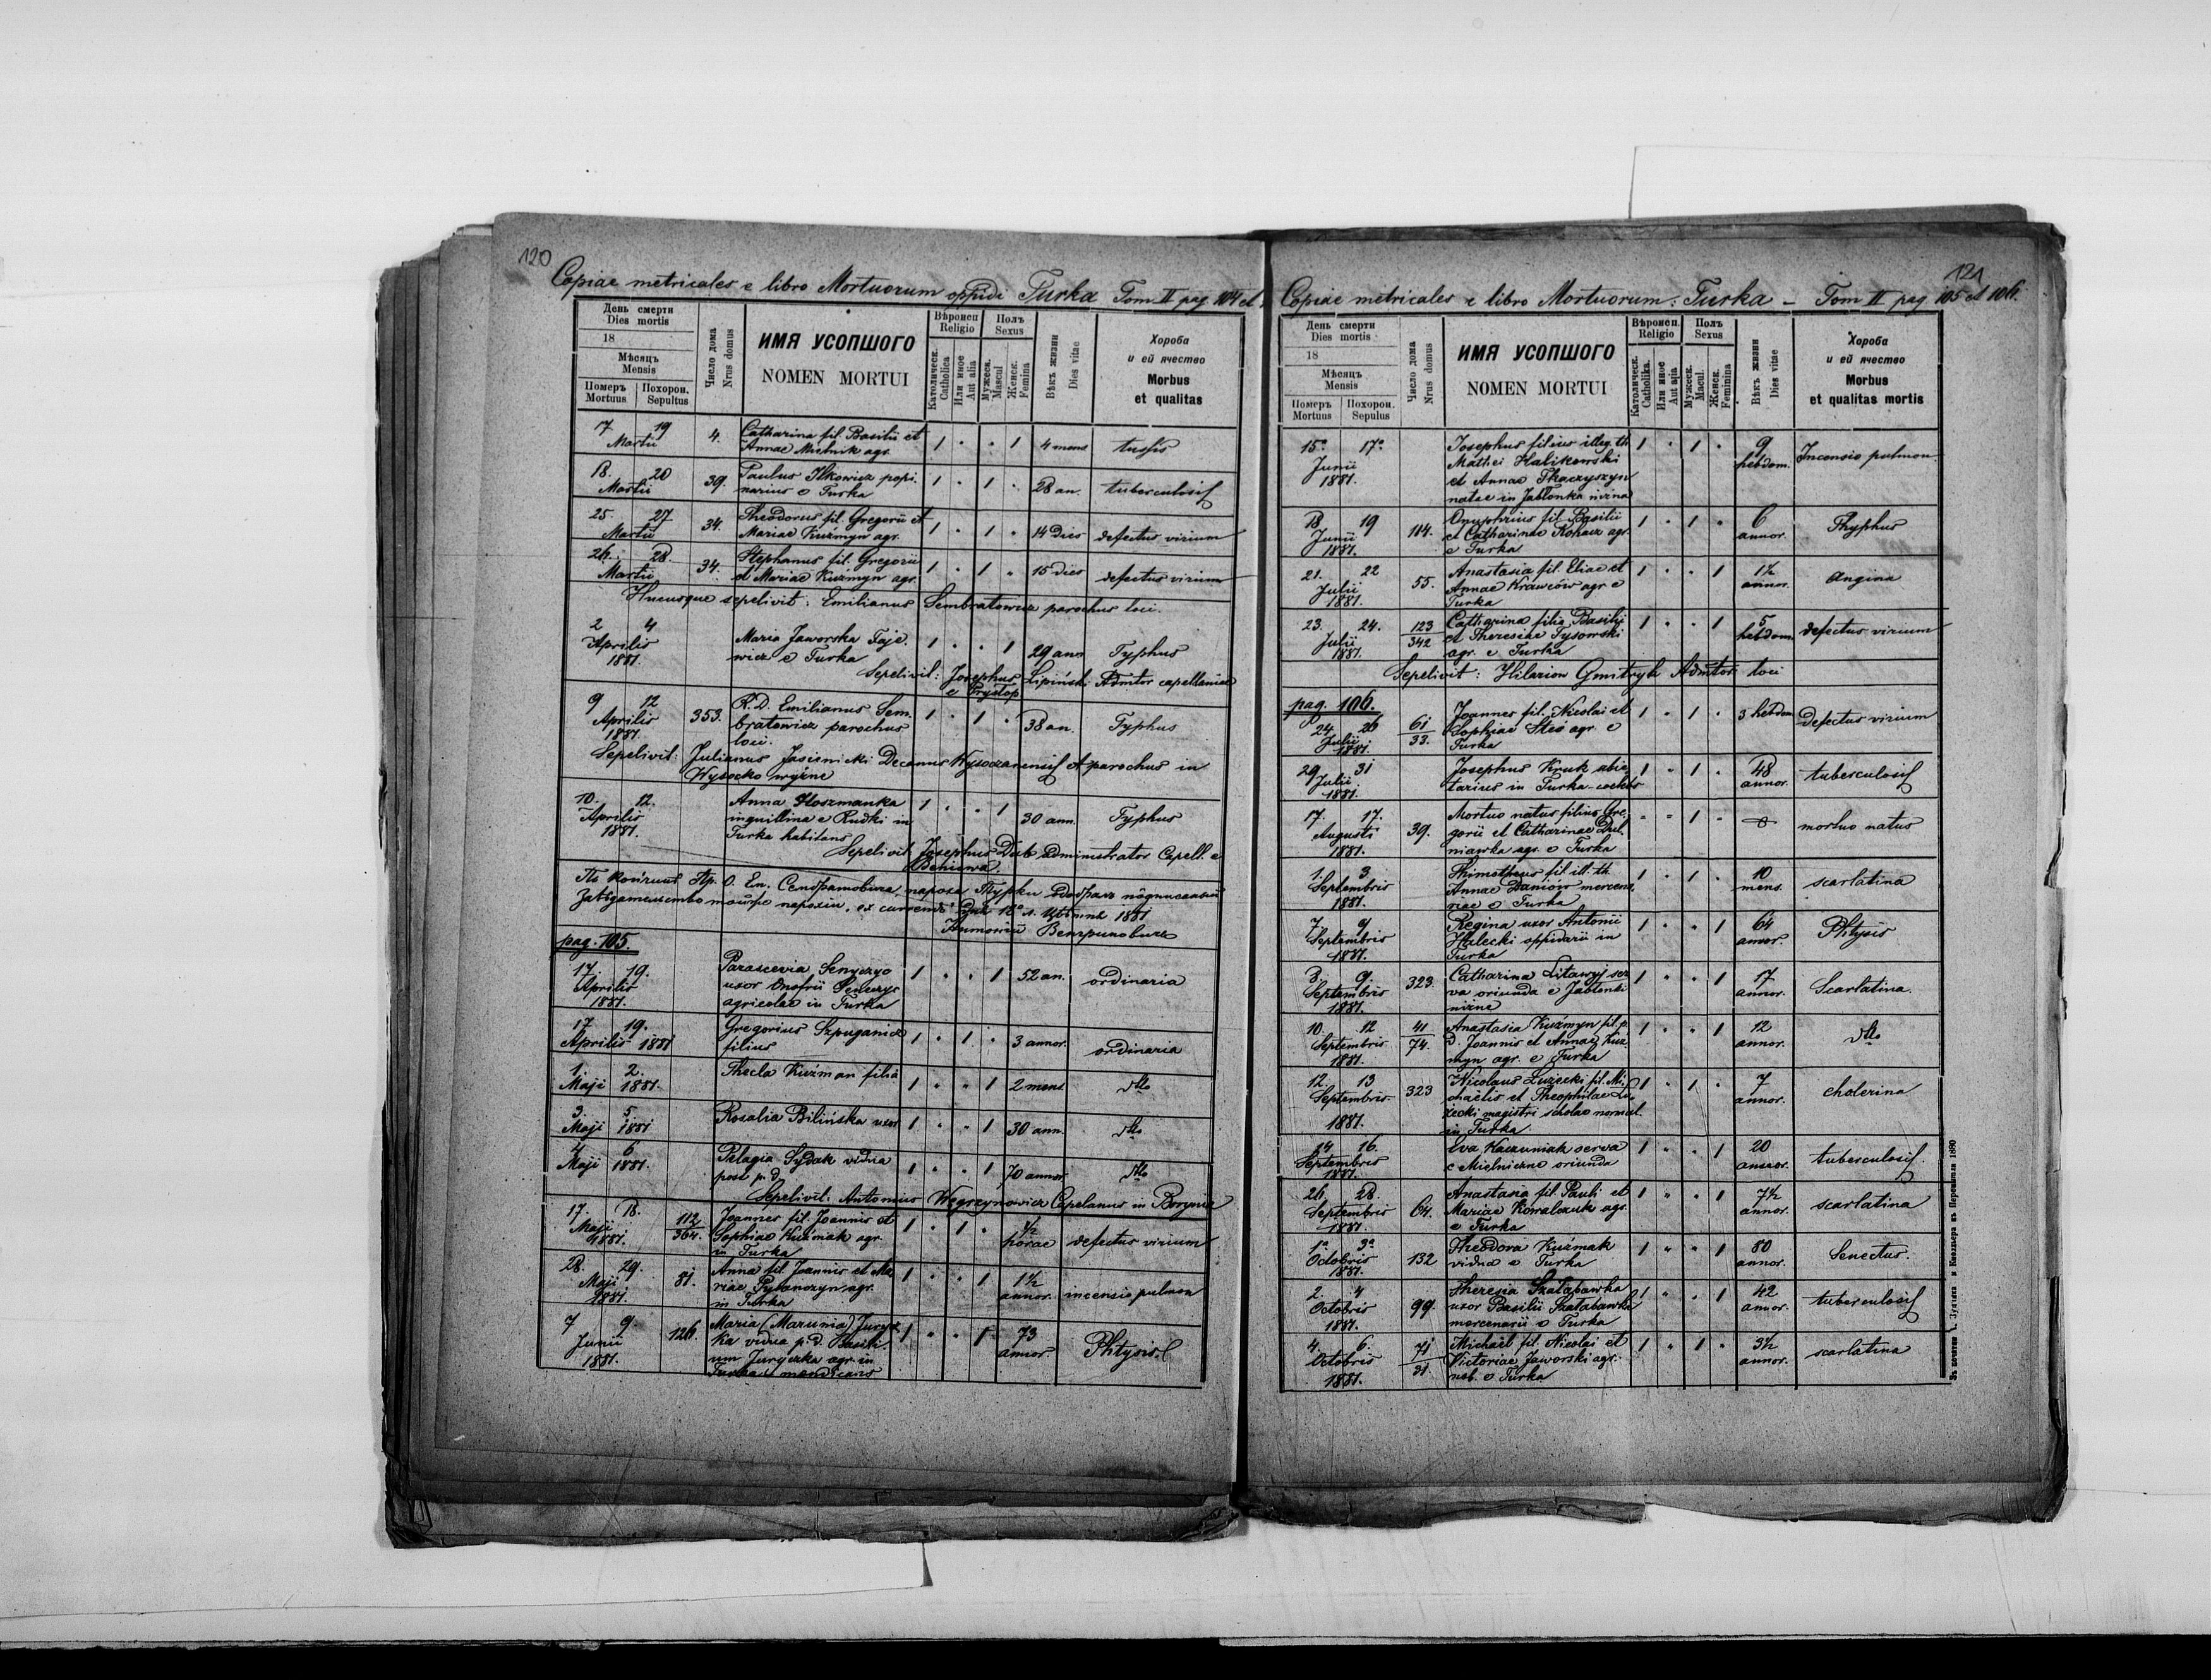 120
Copiae metricales e libro Mortuorum oppidi Turka Tom II pag 104 et
День смерти
Dies mortis
18
Мѣсяцъ
Mensis
Померъ Mortuus
Похорон. Sepultus
Число дома
Nrus domus
ИМЯ УСОПШОГО
NOMEN MORTUI
Вѣроисп.
Religio
Католическ.
Catholica
Или иное
Aut alia
Полъ
Sexus
Мужеск.
Mascul
Женск.
Femina
Вѣкъ жизни
Dies vitae
Хороба
и еѣ ячество
Morbus
et qualitas
17 19 4. Catharina fil. Basilii et 1 " " 1 4 mens tussis
Martii Annae Mielnik agr.
18. 20 39. Paulus Ilkowicz popi- 1 " 1 " 28 an. tuberculosis
Martii narius e Turka
25. 27 34. Theodorus fil. Gregorii et 1 " 1 " 14 Dies defectus virium
Martii Mariae Kuźmyn agr.
26. 28. 34. Stephanus fil. Gregorii 1 " 1 " 15 dies defectus virium
Martii et Mariae Kuźmyn agr.
Hucusque sepelivit: Emilianus Sembratowicz parochus loci.
2 4 Maria Jaworska Faje- 1 " " 1 29 ann Typhus
Aprilis wicz e Turka
1881.
Sepelivit: Josephus Lipiński Admtor capellaniae
e Przysłop
9 12 353. R. D. Emilianus Sem- 1 " 1 " 38 an. Typhus
Aprilis bratowicz parochus
1881. loci.
Sepelivit: Julianus Jasienicki Decanus Wysoczanensis et parochus in
Wysocko wyżne
10. 12. Anna Hoszmanka 1 " " 1 30 ann. Typhus
Aprilis inquilina e Rudki in
1881. Turka habitans
Sepelivit Josephus Dub administrator Capell. e
По кончинѣ Пр. О. Ем. Сембратовича, пароха Турки
завѣдательство
Антоній Венгриновичъ
pag. 105.
17. 19. Parascevia Senyczyc 1 " " 1 52 an. ordinaria
Aprilis uxor Onofrii Senyczyc
1881. agricolae in Turka
17 19. Gregorius Szpuganicz 1 " 1 " 3 annor. ordinaria
Aprilis 1881 filius
1. 2. Thecla Kuźman filia 1 " " 1 2 mens dtto
Maji 1881.
3. 5. Rosalia Bilińska uxor 1 " " 1 30 ann. dtto
Maji 1881
4 6 Pelagia Sydak vidua 1 " " 1 70 annor dtto
Maji 1881. post p. d.
Sepelivit: Antonius Węgrzynowicz Capelanus in Borynia
17. 18. 112/364. Joannes fil. Joannis et 1 " 1 " ½ defectus virium
Maji Sophiae Kuźmak agr. horae
1881. in Turka
28. 29. 81. Anna fil. Joannis et Ma- 1 " " 1 1½ incensio pulmon
Maji riae agr. annor.
1881. in Turka
7 9. 126. Maria (Marunia) Jurycz- 1 " " 1 73 Phtysis.
Junii ka vidua p. d. Basili- annor
1881. um Juryczka agr. in
Turka mendicans
121
Copiae metricales e libro Mortuorum: Turka – Tom II pag 105 et 106.
День смерти
Dies mortis
18
Мѣсяцъ
Mensis
Померъ Mortuus
Похорон. Sepulus
Число дома
Nrus domus
ИМЯ УСОПШОГО
NOMEN MORTUI
Вѣроисп.
Religio
Католическ.
Catholika.
Или иное
Aut alia
Полъ
Sexus
Мужеск.
Macul.
Женск.
Feminina
Вѣкъ жизни
Dies vitae
Хороба
и еѣ ячество
Morbus
et qualitas mortis
15° 17° Josephus filius illeg. th. 1 " 1 " 9 Incensio pulmon.
Junii Mathei Halikowski hebdom.
1881. et Annae Tkaczyszyn
natae in Jabłonka niżna
18 19 114. Onuphrius fil. Basilii 1 " 1 " 6 Thyphus
Junii et Catharinae Kohacz agr. annor.
1881. e Turka
21. 22 55. Anastasia fil. Eliae et 1 " " 1 1½ Angina
Julii Annae Krawców agr e annor.
1881. Turka
23. 24. 123/342 Catharina filia Basilii 1 " " 1 5 defectus virium
Julii et Theresiae Tysowski hebdom.
1881. agr. e Turka
Sepelivit: Hilarion Gmitryk Admtor loci
pag. 106.
24 26 61/33. Joannes fil. Nicolai et 1 " 1 " 3 hebdom Defectus virium
Julii Sophiae Stes agr. e
1881. Turka
29 31 Josephus Kruk abie- 1 " 1 " 48 tuberculosis
Julii tarius in Turka annor.
1881.
17. 17. 39. Mortuo natus filius Gre- " " 1 " mortuo natus
Augusti gorii et Catharinae Dul-
1881. niawka agr. e Turka
1. 3 Thimotheus fil. ill. th. 1 " 1 " 10 scarlatina
Septembris Annae Daniów mercena- mens.
1881. riae e Turka
7 9 Regina uxor Antonii 1 " " 1 64 Phtysis
Septembris Halecki oppidarii in annor.
1881. Turka
8 9. 323. Catharina Litawyj ser- 1 " " 1 17 Scarlatina.
Septembris va oriunda e Jabłonki annor.
1881. niżne
10. 12 41/74. Anastasia Kuźmyn fil. p. 1 " " 1 12 dtto
Septembris d. Joannis et Annae Kuź- annor.
1881. myn agr. e Turka
12. 13 323 Nicolaus Łużecki fil. Mi- 1 " 1 " 7 cholerina
Septembris chaëlis et Theophilae Łu- annor.
1881. żecki magistri scholae normal.
in Turka
14 16. Eva Kaczuniak serva 1 " " 1 20 tuberculosis.
Septembris e Mielniczne oriunda annor.
1881.
26. 28. 64. Anastasia fil. Pauli et 1 " " 1 7½ scarlatina
Septembris Mariae Kowalczuk agr. annor.
1881. e Turka
1° 3° 132 Theodora Kuźmak 1 " " 1 80 Senectus.
Octobris vidua e Turka annor.
1881.
2. 4 99. Theresia Szałabawka 1 " " 1 42 tuberculosis
Octobris uxor Basilii Szałabawka annor.
1881. mercenarii e Turka
4. 6. 71/31. Michaël fil. Nicolai et 1 " 1 " 3½ scarlatina
Octobris Victoriae Jaworski agr. annor.
1881. nob. e Turka